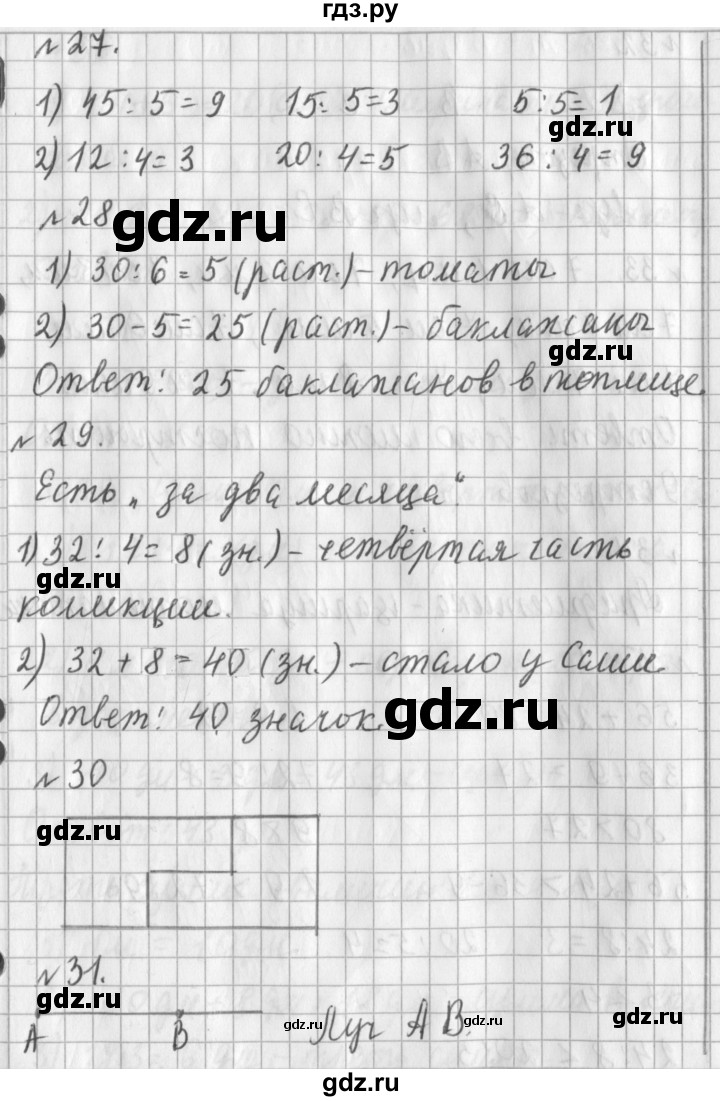 гдз.ру
№ 27.
1) 45 : 5 = 9 15 : 5 = 3 5 : 5 = 1
gdz.ru
2) 12 : 4 = 3 20 : 4 = 5 36 : 4 = 9
№ 28
gdz.ru
1) 30 : 6 = 5 (раст.) – томаты
2) 30 – 5 = 25 (раст.) – баклажаны
gdz.ru
Ответ: 25 баклажанов в теплице.
№ 29.
Есть „за два месяца“.
1) 32 : 4 = 8 (зн.) – четвёртая часть
gdz.ru
коллекции.
2) 32 + 8 = 40 (зн.) – стало у Саши.
Ответ: 40 значок.
gdz.ru
№ 30
gdz.ru
№ 31.
gdz.ru
A B Луч AB.
gdz.ru gdz.ru gdz.ru
gdz.ru